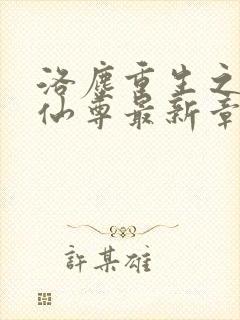 洛塵重生之
仙尊最新章
許某雄